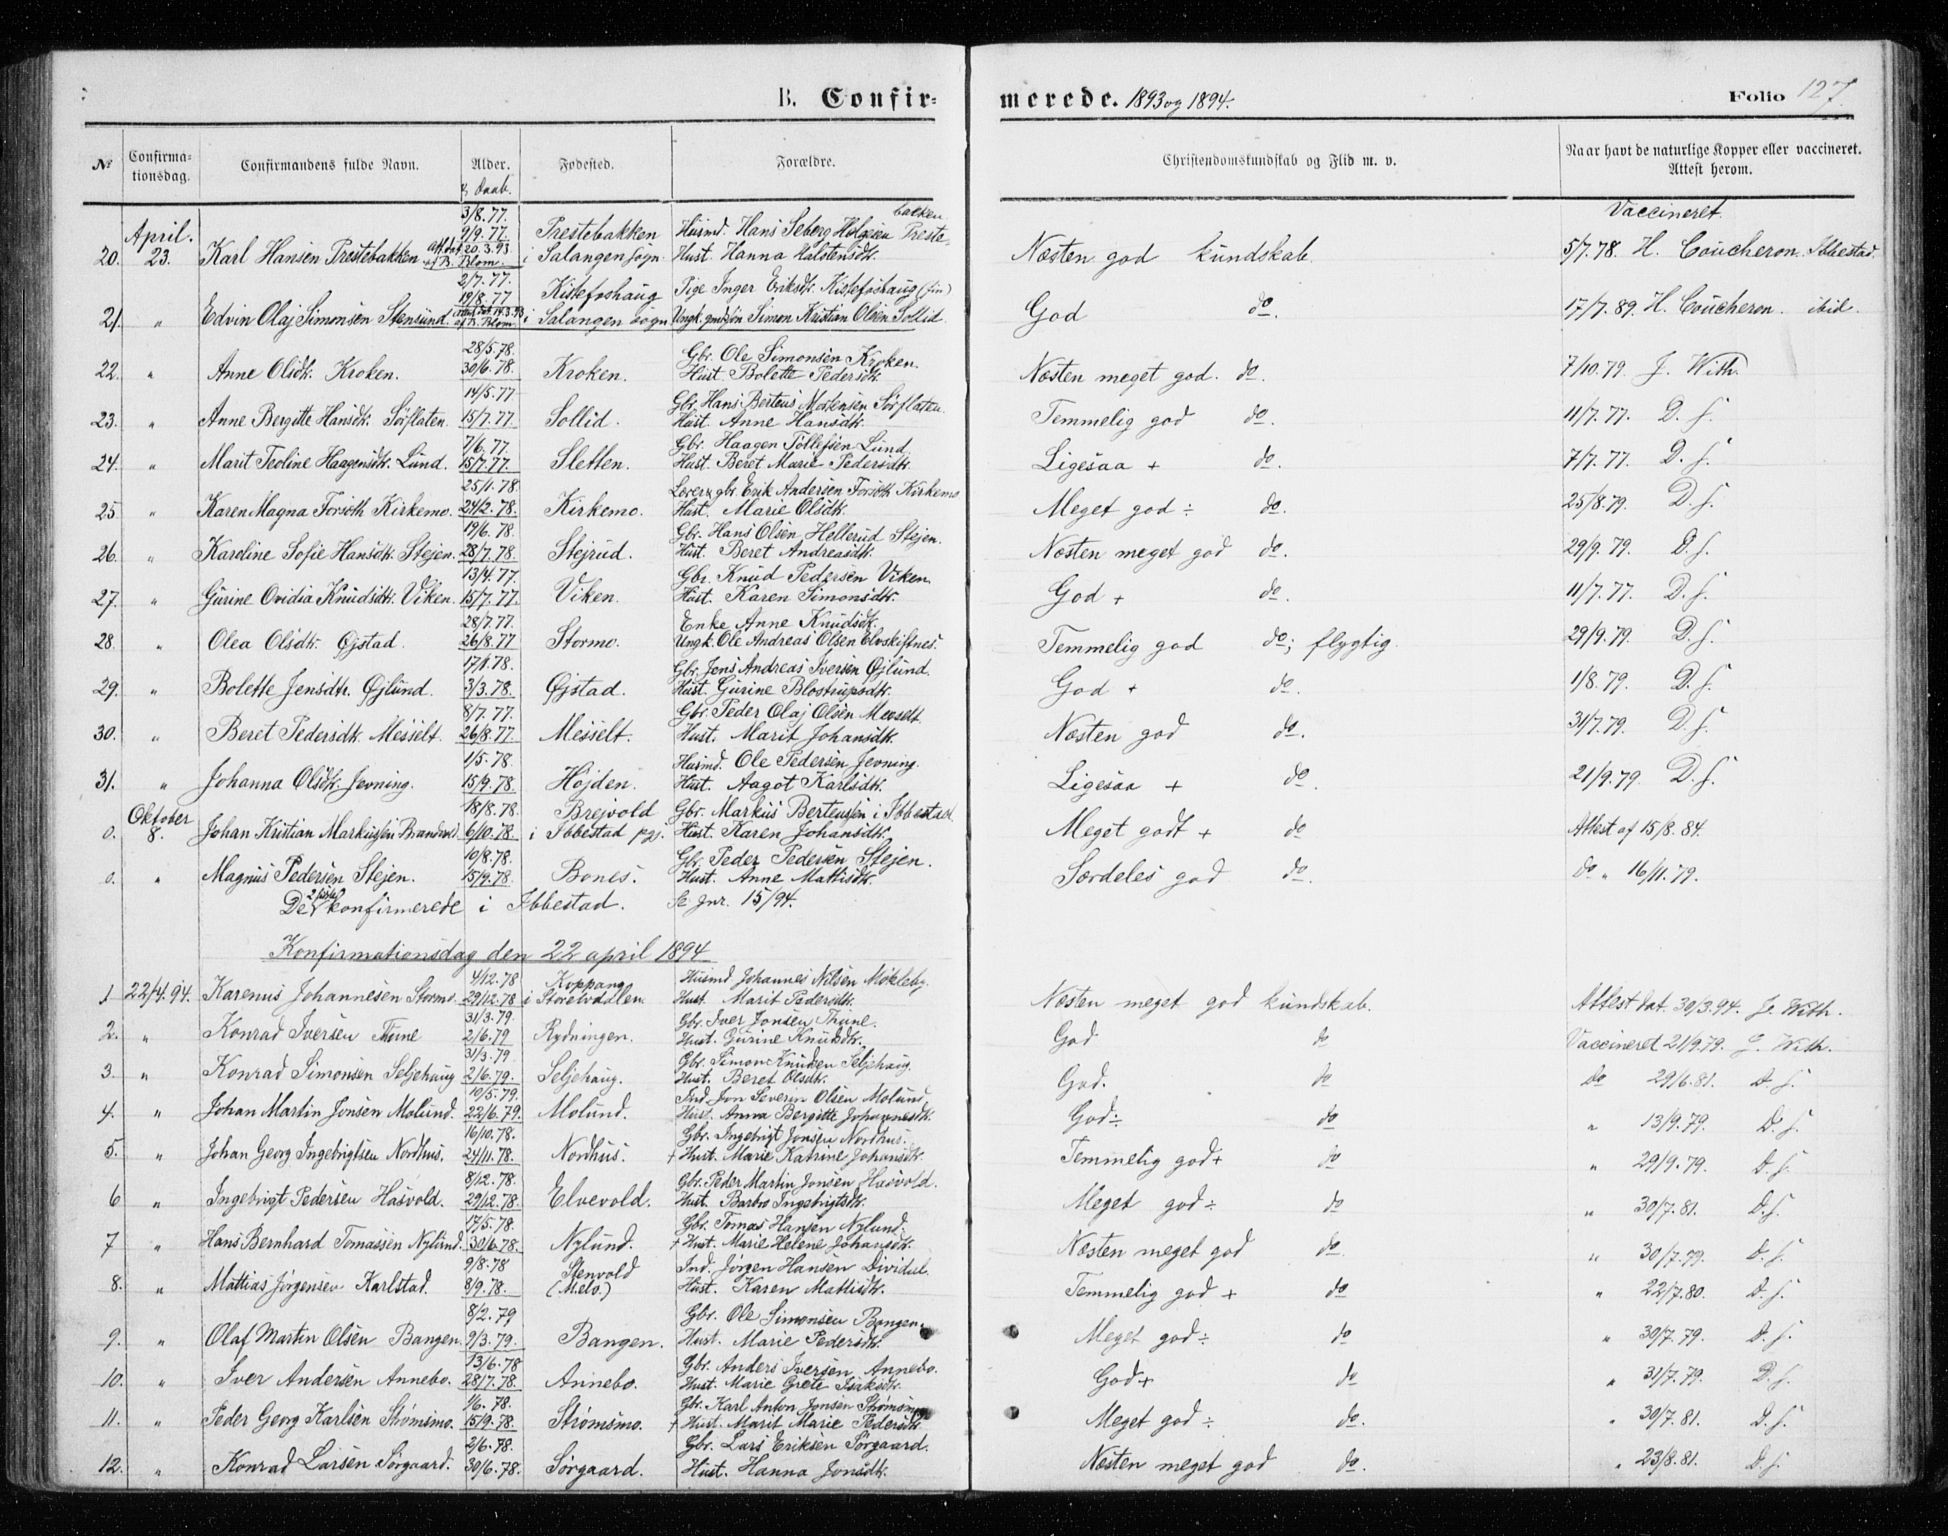 B. Confirmerede. 1893 og 1894. Folio 127.
No Confirmationsdag. Confirmandens fulde Navn. Alder. & daab. Fødested. Forældre. Christendomskundskab og Flid m. v. Naar havt de naturlige Kopper eller vaccineret. Attest herom.
Vaccineret.
3/8.77. bakken
April. 9/9.77. Prestebakken Husmd. Hans Seberg Holgesen Preste-
20. 23. Karl Hansen Prestebakken att. dat. 20.3.93 af B. Blom. i Salangen sogn Hust. Hanna Halstensdtr. Næsten god kundskab. 5/7.78. H. Coucheron. Ibbestad.
2/7.77.
19/8.77 Kistefoshaug Pige Inger Eriksdtr. Kistefoshaug (fin)
21. " Edvin Olaj Simonsen Stensund. att. dat. 14.3.93 af B. Blom. i Salangen sogn Ungk. gmdsøn Simon Kristian Olsen Sollid. God do. 17/7.89. H. Coucheron. ibid.
28/5.78. Gbr. Ole Simonsen Kroken.
22. " Anne Olsdtr. Kroken. 30/6.78. Kroken. Hust. Bolette Pedersdtr. Næsten meget god. do. 7/10.79. J. With.
14/5.77 Gbr. Hans Berteus Mortensen Sørflaten.
23. " Anne Bergitte Hansdtr. Sørflaten. 15/7.77. Sollid. Hust. Anne Hansdtr. Temmelig god do. 11/7.77. D. s.
7/6.77. Gbr. Haagen Tollefsen Lund.
24. " Marit Teoline Haagensdtr. Lund. 15/7.77. Sletten. Hust. Beret Marie Pedersdtr. Ligesaa + do. 7/7.77. D. s.
25/1.78. Lærer & gbr. Erik Andersen Forseth Kirkemo
25 " Karen Magna Forseth Kirkemo. 24/2.78. Kirkemo. Hust. Marie Olsdtr. Meget god ÷ do. 25/8.79. D. s.
19/6.78 Gbr. Hans Olsen Hellerud Stejen.
26. " Karoline Sofie Hansdtr. Stejen. 28/7.78. Stejrud. Hust. Beret Andreasdtr. Næsten meget god do. 29/9.79. D. s.
13/4.77. Gbr. Knud Pedersen Viken.
27. " Gurine Ovidia Knudsdtr. Viken. 15/7.77. Viken. Hust. Karen Simonsdtr. God + do. 11/7.77. D. s.
28/7.77. Enke Anne Knudsdtr.
28. " Olea Olsdtr. Øjstad. 26/8.77 Stormo. Ungk. Ole Andreas Olsen Elveskiftnes. Temmelig god do; flygtig. 29/9.79. D. s.
17/1.78. Gbr. Jens Andreas Iversen Øjlund.
29. " Bolette Jensdtr. Øjlund. 3/3.78. Øjstad. Hust. Gurine Blostrupsdtr. God + do. 1/8.79. D. s.
8/7.77. Gbr. Peder Olaj Olsen Messelt.
30. " Beret Pedersdtr. Messelt. 26/8.77. Messelt. Hust. Marit Johansdtr. Næsten god do. 31/7.79. D. s.
1/5.78. Husmd. Ole Pedersen Jevning.
31. " Johanna Olsdtr. Jevning. 15/9.78. Højden. Hust. Aagot Karlsdtr. Ligesaa + do. 21/9.79. D. s.
Oktober 18/8.78. Brejvold Gbr. Markus Berteussen i Ibbestad.
0. 8. Johan Kristian Markussen Brandvol. 6/10.78. i Ibbestad pgj. Hust. Karen Johansdtr. Meget godt + do Attest af 15/8.84.
10/8.78. Gbr. Peder Pedersen Stejen.
0. " Magnus Pedersen Stejen. 15/9.78. Bones. Hust. Anne Mattisdtr. Særdeles god do. do " 16/11.79.
De 2 sidste konfirmerede i Ibbestad. Se Jnr. 15/94.
Konfirmationsdag den 22 april 1894
4/12.78 Koppang Husmd Johannes Nilsen Mökleby.
1 22/4.94. Karenus Johannesen Stormo. 29/12.78 i Storelvdalen. Hust. Marit Pedersdtr. Næsten meget god kundskab. Attest dat. 30/3.94. J. With.
31/3.79. Gbr. Iver Jonsen Thune.
2. " Konrad Iversen Thune 2/6.79 Rydningen. Hust. Gurine Knudsdtr. God do Vaccineret 21/9.79. J. With.
31/3.79. Gbr. Simon Knudsen Seljehaug.
3. " Konrad Simonsen Seljehaug 2/6.79. Seljehaug. Hust. Beret Olsdtr. God. do do 29/6.81. D. s.
10/5.79. Ind. Jon Severin Olsen Molund.
4. " Johan Martin Jonsen Molund. 22/6.79. Molund. Hust. Anna Bergitte Johannesdtr. God ÷ do " 13/9.79. D. s.
16/10.78. Gbr. Ingebrigt Jonsen Nordhus.
5. " Johan Georg Ingebrigtsen Nordhus. 24/11.78. Nordhus. + Hust. Marie Katrine Johansdtr. Temmelig god + do " 29/9.79. D. s.
8/12.78. Gbr. Peder Martin Jonsen Hasvold.
6 " Ingebrigt Pedersen Hasvold. 29/12.78. Elvevold. Hust. Barbro Ingebrigtsdtr. Meget god ÷ do " 30/7.81. D. s.
17/5.78. Gbr. Tomas Hansen Nylund.
7 " Hans Bernhard Tomassen Nylund. 30/6.78. Nylund. + Hust. Marie Helene Johansdtr. Næsten meget god do " 30/7.79. D. s.
9/8.78 Stenvold Ind. Jörgen Hansen Dividal.
8. " Mattias Jørgensen Karlstad. 8/9.78. (Melö.) Hust. Karen Mattisdtr. Temmelig god + do " 22/7.80. D. s.
8/2.79 Gbr. Ole Simonsen Bangen.
9. " Olaf Martin Olsen Bangen. 9/3.79. Bangen. Hust. Marie Pedersdtr. Meget god ÷ do " 30/7.79. D. s.
13/6.78 Gbr. Anders Iversen Annebo.
10. " Iver Andersen Annebo. 28/7.78. Annebo. Hust. Marie Grete Eriksdtr. God + do " 31/7.79. D. s.
1/6.78. Gbr. Karl Anton Jonsen Strømsmo.
11. " Peder Georg Karlsen Strømsmo. 15/9.78. Strømsmo. + Hust. Marit Marie Pedersdtr. Meget god ÷ do. " 30/7.81. D. s.
2/6.78. Gbr. Lars Eriksen Sørgaard.
12. " Konrad Larsen Sørgaard. 30/6.78. Sørgaard. Hust. Hanna Jonsdtr. Næsten meget god do. " 23/8.81. D. s.